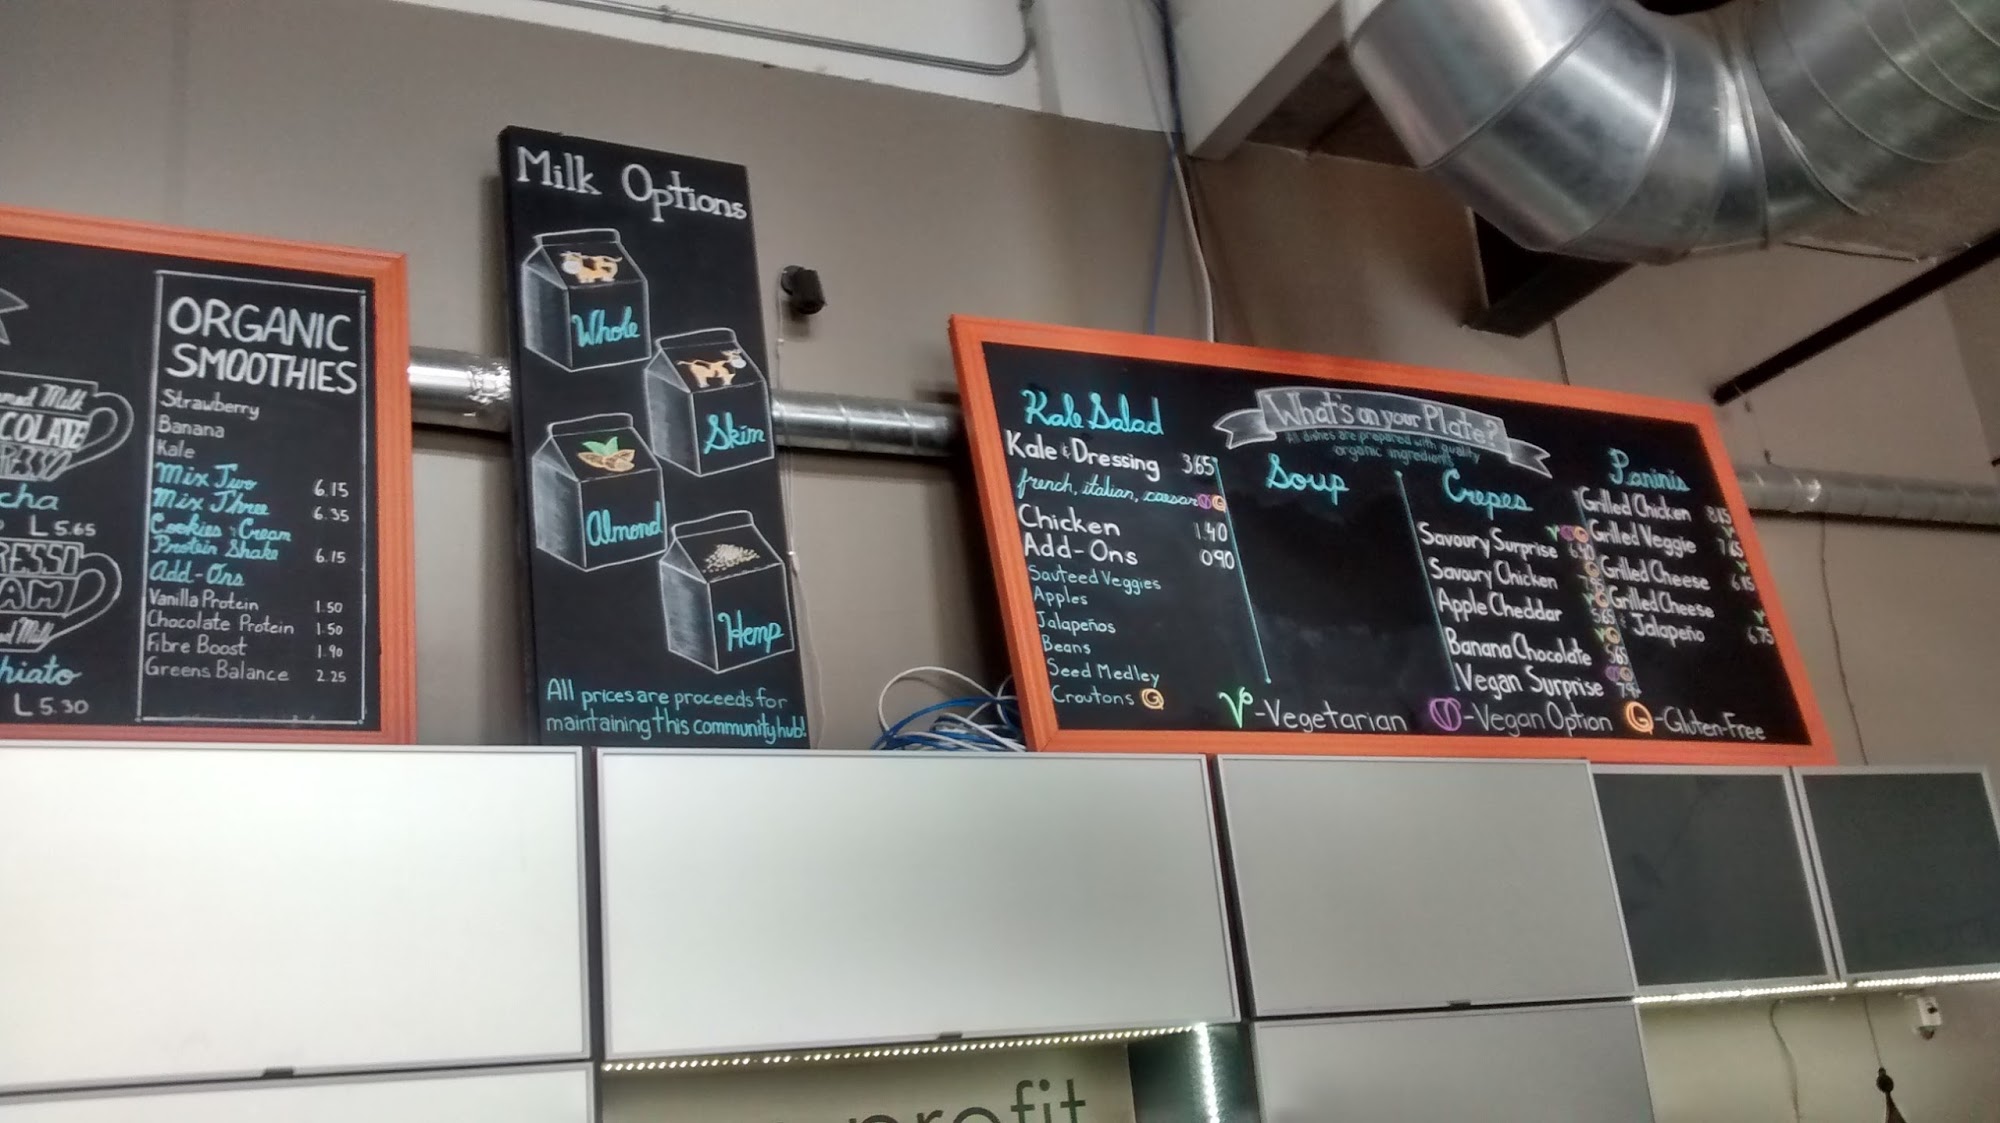 COLATE
L 5.65
L 5.30
ORGANIC
SMOOTHIES
Strawberry
Banana
Kale
Mix Two 6.15
Mix Three 6.35
Cookies & Cream
Protein Shake 6.15
Add-Ons
Vanilla Protein 1.50
Chocolate Protein 1.50
Fibre Boost 1.90
Greens Balance 2.25
Milk Options
Whole
Skim
Almond
Hemp
All prices are proceeds for
maintaining this community hub!
What's on your Plate?
All dishes are prepared with quality
organic ingredients
Kale Salad
Kale & Dressing 3.65
french, italian, caesar
Chicken 1.40
Add-Ons 0.90
Sauteed Veggies
Apples
Jalapeños
Beans
Seed Medley
Croutons G
Soup
Crepes
Savoury Surprise
Savoury Chicken
Apple Cheddar 5.65
Banana Chocolate 5.65
Vegan Surprise
Paninis
Grilled Chicken 8.15
Grilled Veggie 7.65
Grilled Cheese 6.15
Grilled Cheese
& Jalapeño 6.75
V-Vegetarian V-Vegan Option G-Gluten-Free
profit